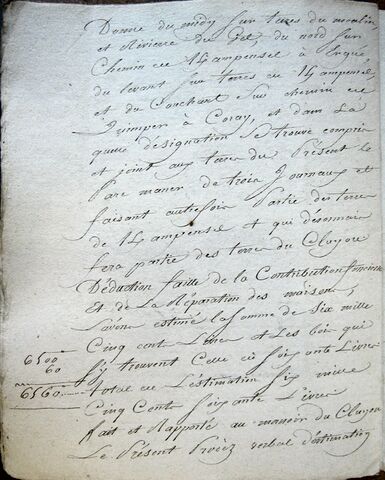 Donne du midy sur terres du moulin
et Riviere du Jet, du nord sur
Chemin de St Lampensel à Ergué
du levant sur terres de St Lampensel,
et du Couchant sur chemin de
Quimper à Coray, et dans La
quelle désignation se trouve compris
et joint aux terres du Présent le
Parc maner de trois Journaux et
faisant autrefois Partie des terres
de St Lampensel et qui désormais
fera partie des terres du Cluyou
Déduction faitte de la Contribution fonciere
Et de la Réparation des maisons,
L'avons estimé la somme de six mille
Cinq cent Livres et Les bois qui
S'y trouvent Celle de soixante Livres
6500
60
total de L'estimation six mille
6560
Cinq Cents soixante Livres
fait et Rapporté au manoir du Cluyou
Le Présent Procèz verbal d'estimation